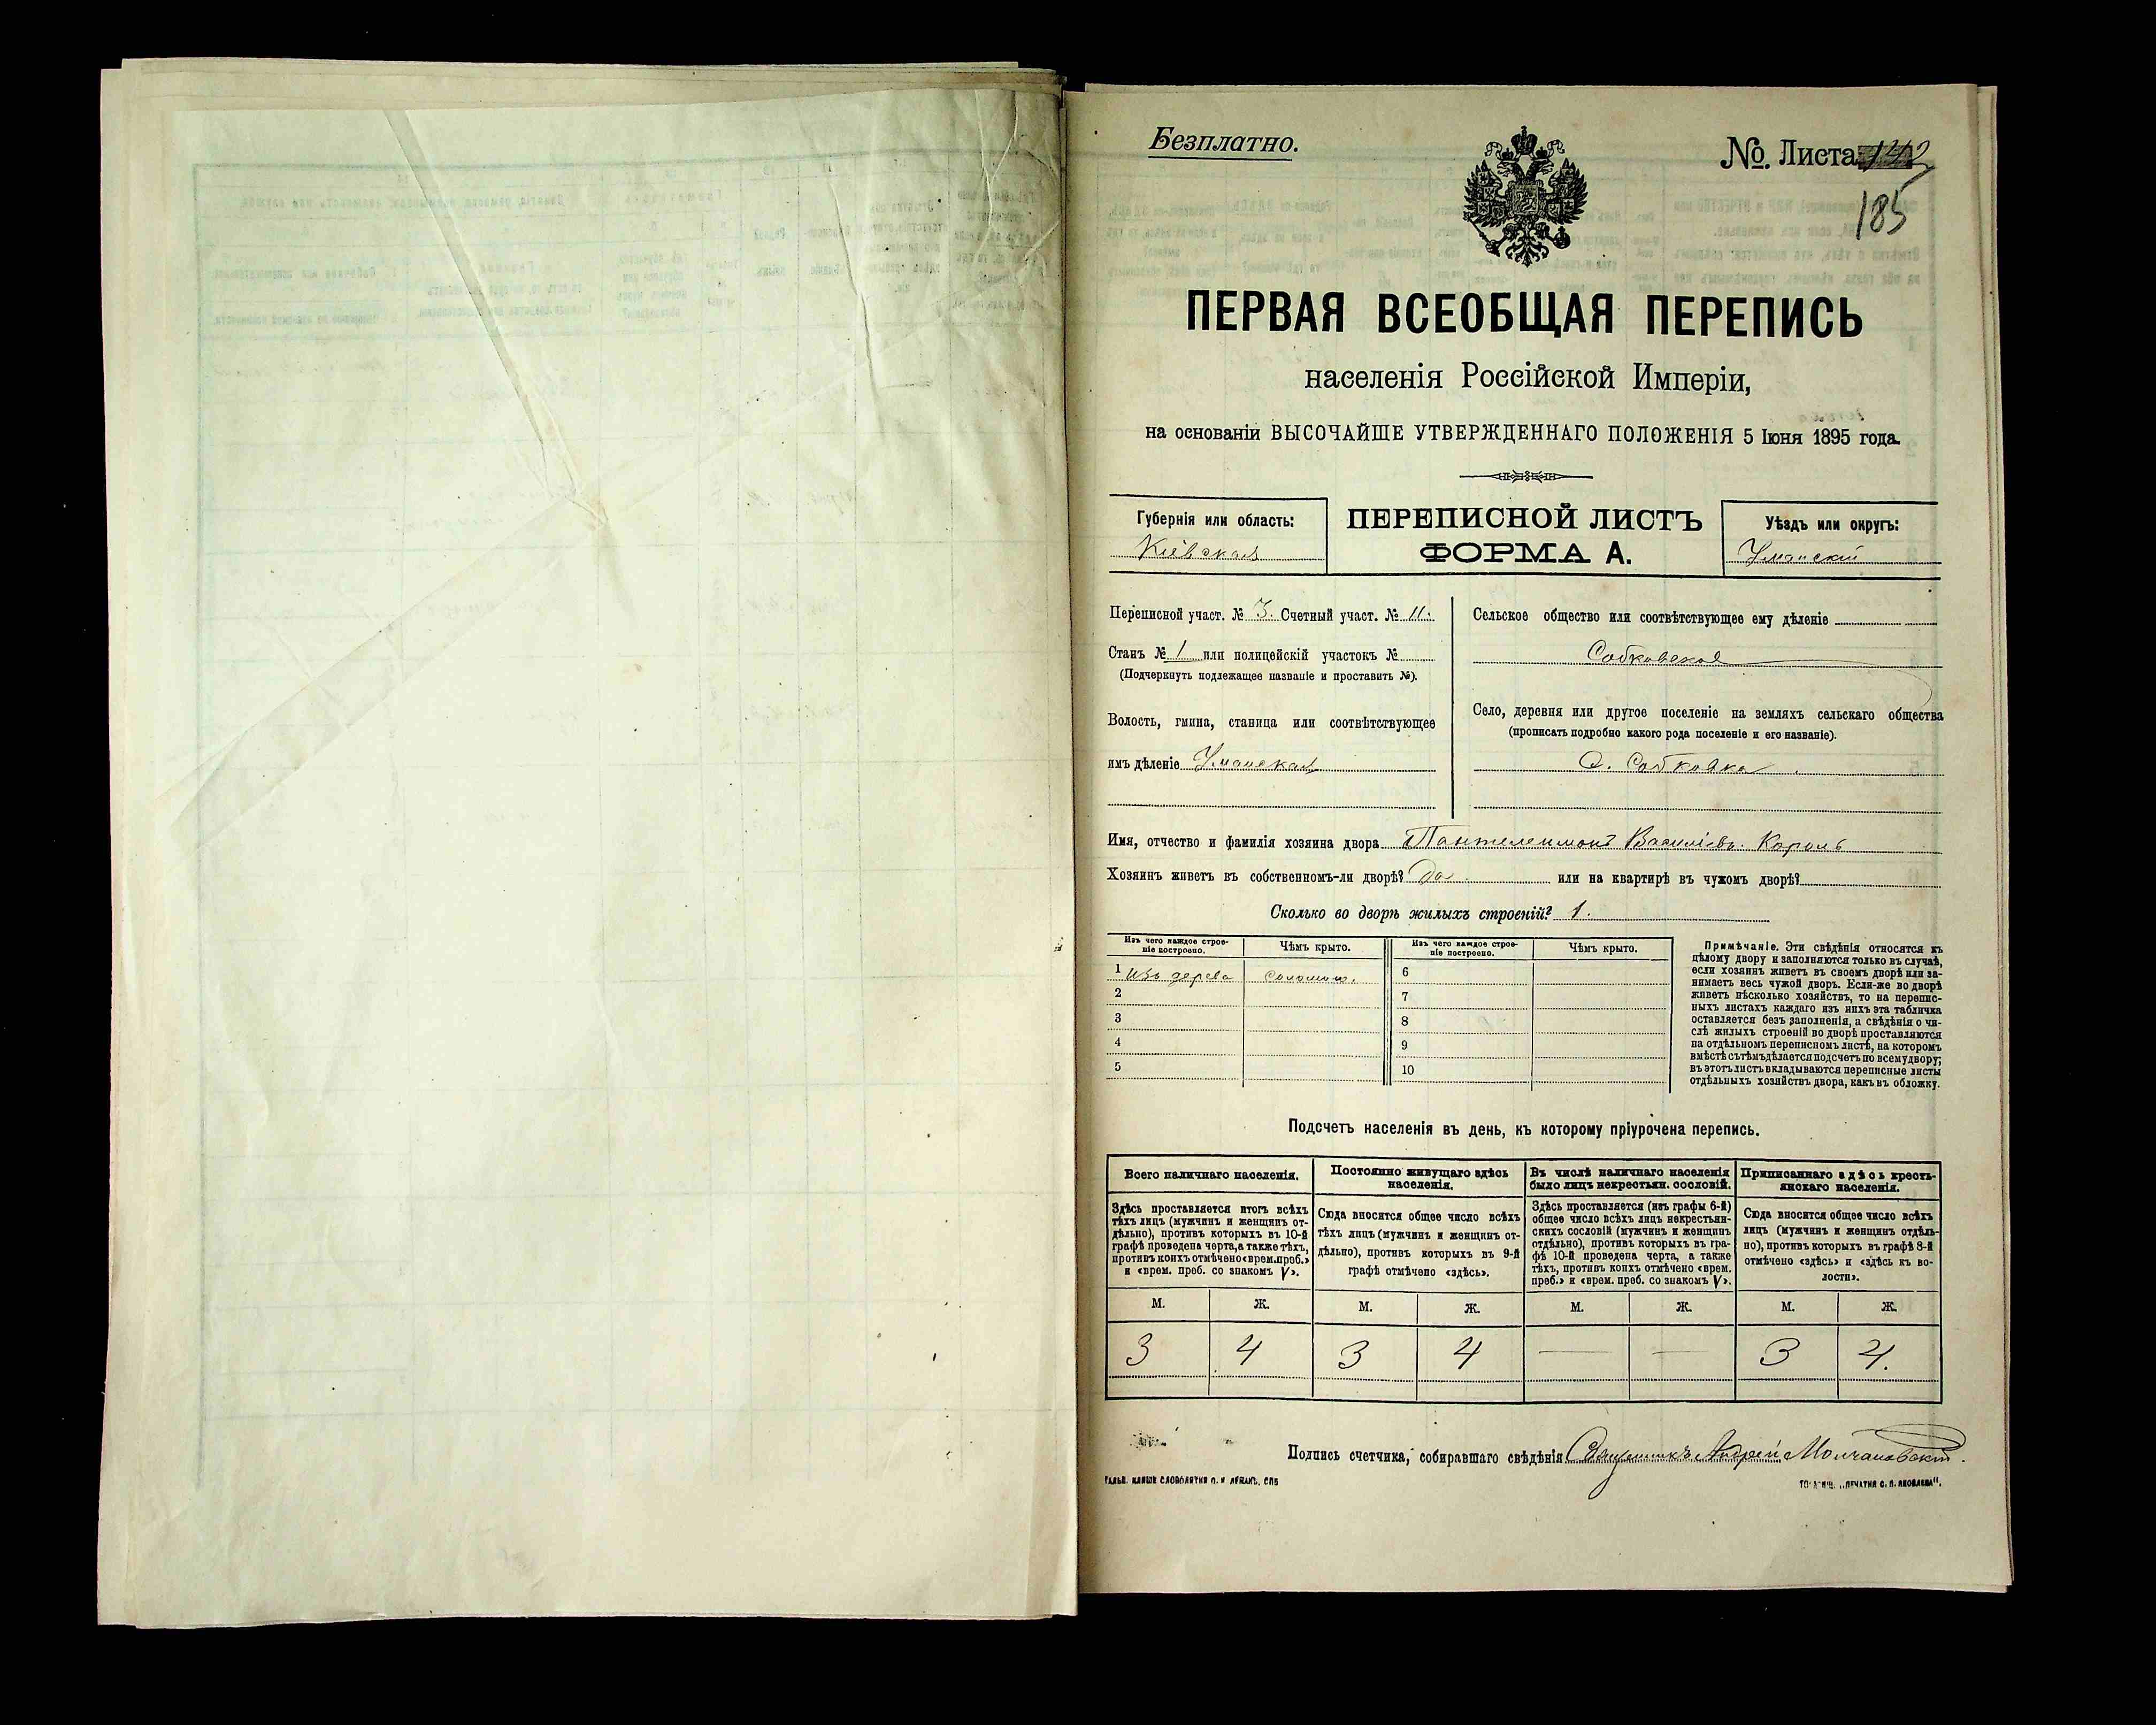 Безплатно.
№ Листа 142
185
ПЕРВАЯ ВСЕОБЩАЯ ПЕРЕПИСЬ
населенія Россійской Имперіи,
на основаніи ВЫСОЧАЙШЕ УТВЕРЖДЕННАГО ПОЛОЖЕНІЯ 5 Іюня 1895 года.
Губернія или область:
Кіевская
ПЕРЕПИСНОЙ ЛИСТЪ
ФОРМА А.
Уѣздъ или округъ:
Уманскій
Переписной участ. № 3. Счетный участ. № 11.
Станъ № 1 или полицейскій участокъ №
(Подчеркнуть подлежащее названіе и проставить №).
Волость, гмина, станица или соотвѣтствующее
имъ дѣленіе Уманская
Сельское общество или соотвѣтствующее ему дѣленіе
Собковское
Село, деревня или другое поселеніе на земляхъ сельскаго общества
(прописать подробно какого рода поселеніе и его названіе).
с. Собковка
Имя, отчество и фамилія хозяина двора Пантелеимонъ Василіевъ Король
Хозяинъ живетъ въ собственномъ-ли дворѣ? Да. или на квартирѣ въ чужомъ дворѣ?
Сколько во дворѣ жилыхъ строеній? 1.
Изъ чего каждое строеніе построено. Чѣмъ крыто. Изъ чего каждое строеніе построено. Чѣмъ крыто.
1 Изъ дерева Соломою. 6
2 7
3 8
4 9
5 10
Примѣчаніе. Эти свѣдѣнія относятся къ
цѣлому двору и заполняются только въ случаѣ,
если хозяинъ живетъ въ своемъ дворѣ или за-
нимаетъ весь чужой дворъ. Если-же во дворѣ
живетъ нѣсколько хозяйствъ, то на перепис-
ныхъ листахъ каждаго изъ нихъ эта табличка
оставляется безъ заполненія, а свѣдѣнія о чи-
слѣ жилыхъ строеній во дворѣ проставляются
на отдѣльномъ переписномъ листѣ, на которомъ
вмѣстѣ съ тѣмъ дѣлается подсчетъ по всему двору;
въ этотъ листъ вкладываются переписные листы
отдѣльныхъ хозяйствъ двора, какъ въ обложку.
Подсчетъ населенія въ день, къ которому пріурочена перепись.
Всего наличнаго населенія.
Здѣсь проставляется итогъ всѣхъ
тѣхъ лицъ (мужчинъ и женщинъ от-
дѣльно), противъ которыхъ въ 10-й
графѣ проведена черта, а также тѣхъ,
противъ коихъ отмѣчено «врем. преб.»
и «врем. преб. со знакомъ V».
Постоянно живущаго здѣсь
населенія.
Сюда вносится общее число всѣхъ
тѣхъ лицъ (мужчинъ и женщинъ от-
дѣльно), противъ которыхъ въ 9-й
графѣ отмѣчено «здѣсь».
Въ числѣ наличнаго населенія
было лицъ некрестьян. сословій.
Здѣсь проставляется (изъ графы 6-й)
общее число всѣхъ лицъ некрестьян-
скихъ сословій (мужчинъ и женщинъ
отдѣльно), противъ которыхъ въ гра-
фѣ 10-й проведена черта, а также
тѣхъ, противъ коихъ отмѣчено «врем.
преб.» и «врем. преб. со знакомъ V».
Приписаннаго здѣсь кресть-
янскаго населенія.
Сюда вносится общее число всѣхъ
лицъ (мужчинъ и женщинъ отдѣль-
но), противъ которыхъ въ графѣ 8-й
отмѣчено «здѣсь» и «здѣсь къ во-
лости».
М. Ж. М. Ж. М. Ж. М. Ж.
3 4 3 4 — — 3 4.
Подпись счетчика, собиравшаго свѣдѣнія Священникъ Андрей Молчановскій.